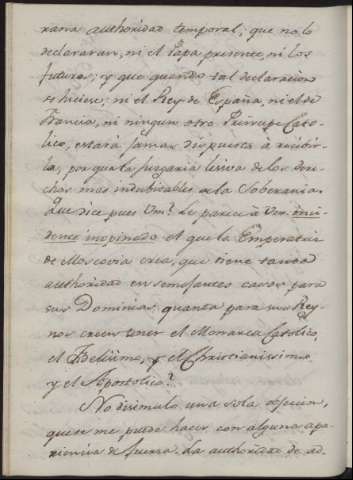 rana authoridad temporal, que no lo
declararan, ni el Papa presente, ni los
futuros; y que quando tal declaracion
se hiciese, ni el Rey de España, ni el de
Francia, ni ningun otro Principe Cato-
lico, estará jamas dispuesto à recibir-
la, porque la juzgaria lesiva de los dere-
chos mas indubitables de la Soberania.
Que dice pues Vm.? Le parece à Vm.
inopinado el que la Emperatriz
de Moscovia crea, que tiene tanta
authoridad en semejantes casos para
sus Dominios; quanta, para sus Rey-
nos creen tener el Monarca Catolico,
el Fidelisimo, y el Christianissimo
y el Apostolico?
No disimulo una sola objecion,
que se me puede hacer con alguna apa-
riencia de fuerza. La authoridad de ad-